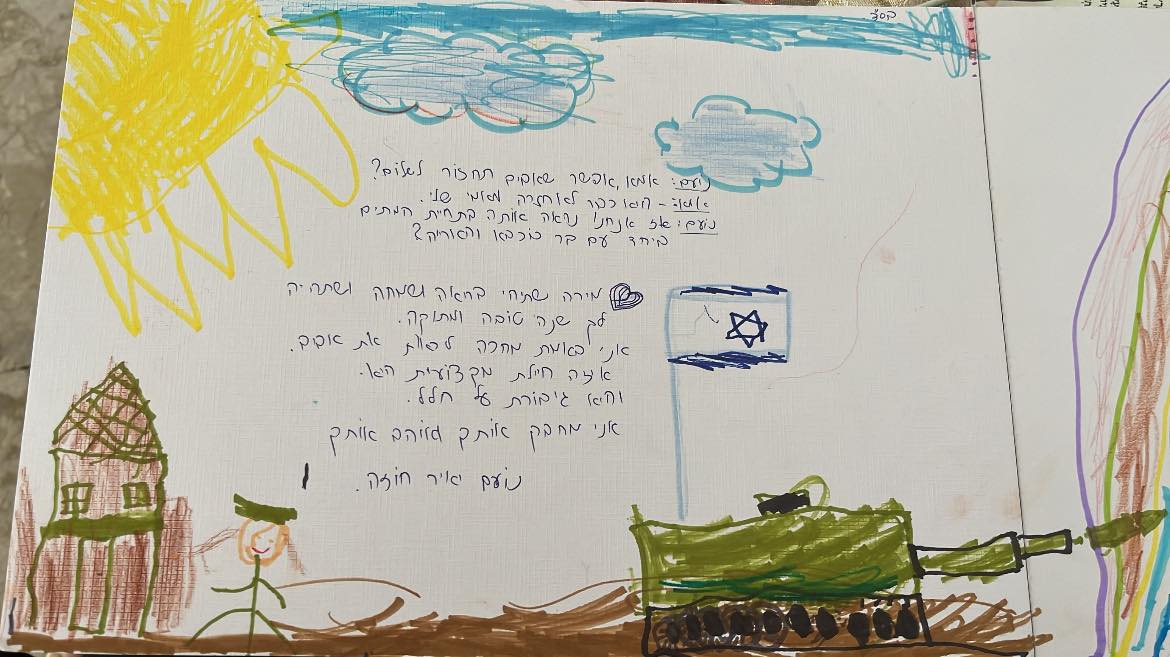 בס"ד
נועם: אמא, אפשר שאביב תחזור לשלום?
אמא:- היא כבר לא חוזרת מאמי שלי.
נועם: אז אנחנו נראה אותה בתחיית המתים
ביחד עם בר כוכבא והאריה?
מירה שתיהי בריאה ושמחה ושתהיה
לך שנה טובה ומתוקה.
אני באמת מחכה לראות את אביב.
איזה חיילת מקצועית היא.
והיא גיבורת על חלל.
אני מחבק אותך ואוהב אותך
נועם יאיר חוזה.